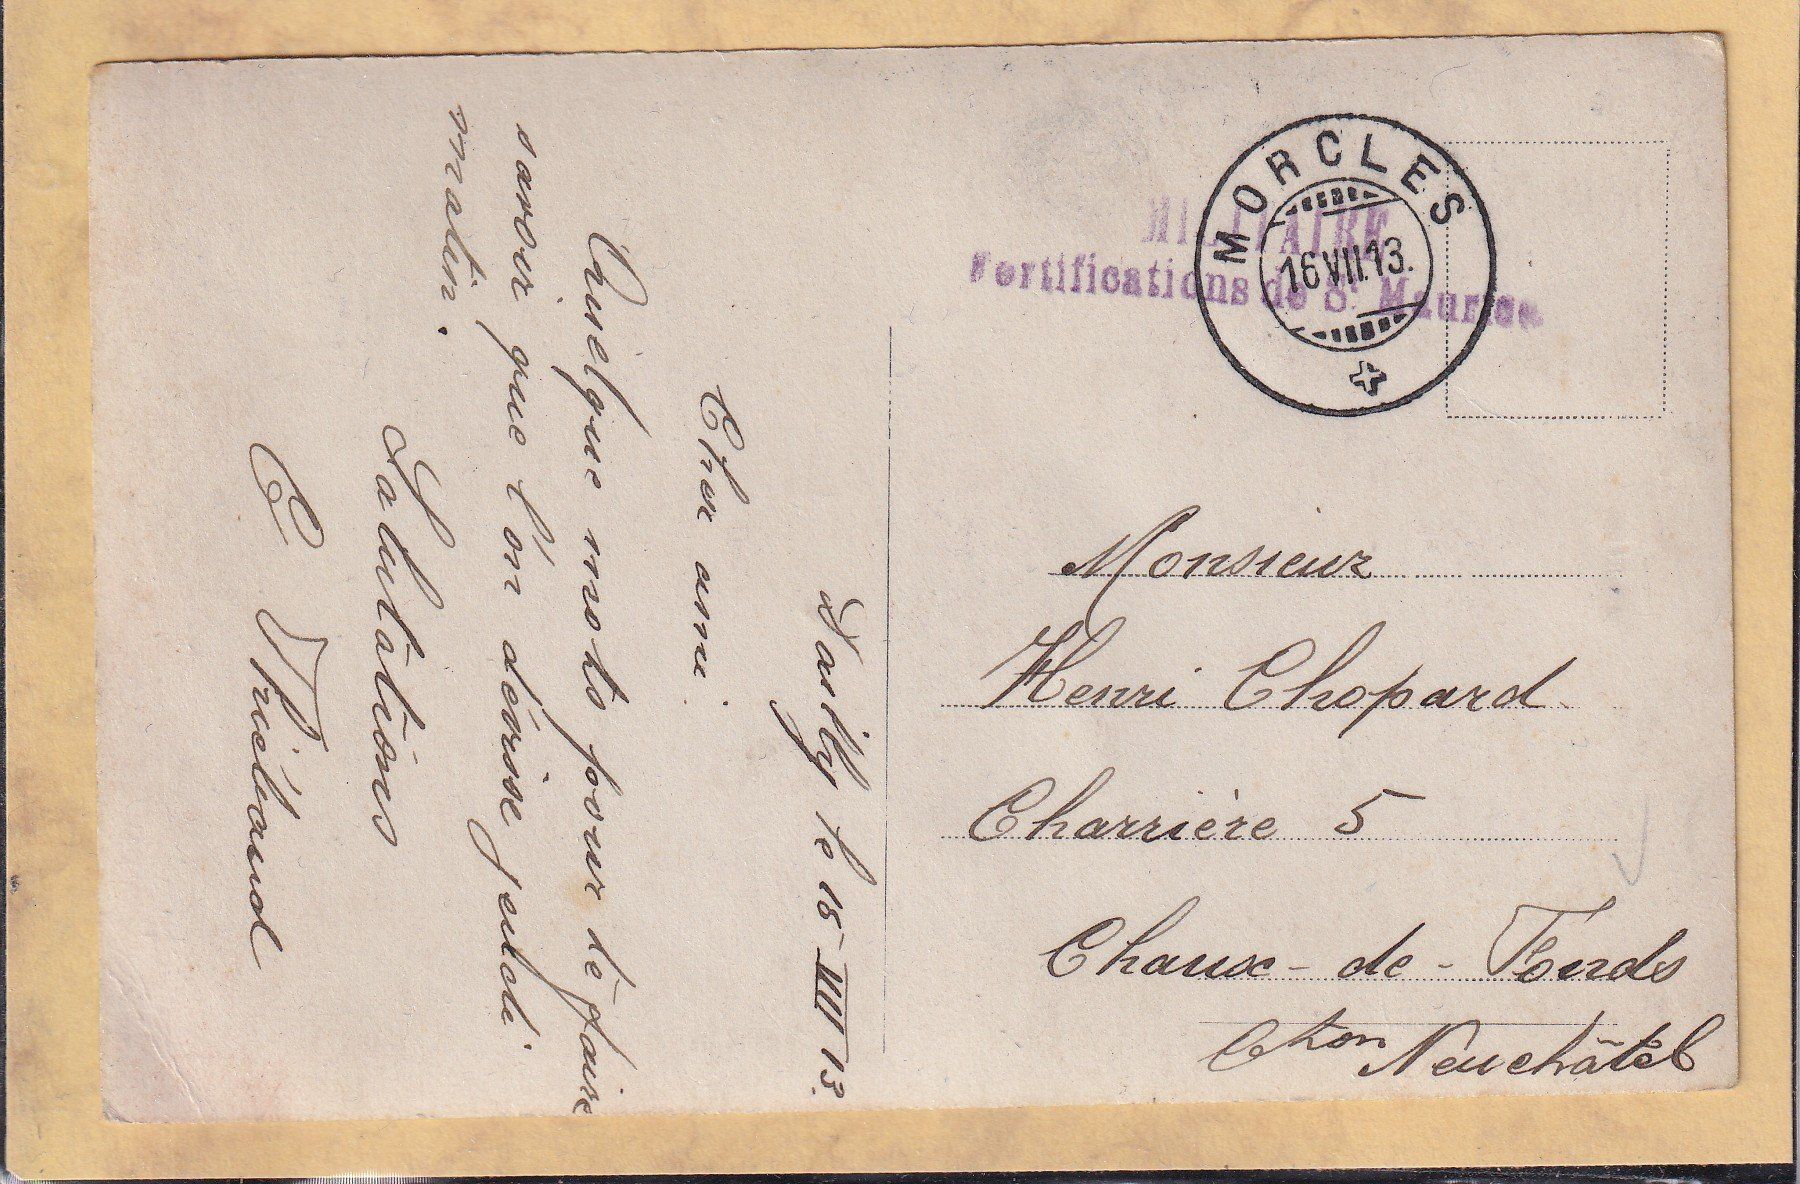 MILITAIRE
Fortifications de St Maurice
MORCLES
16 VII 13.
Monsieur
Henri Chopard
Charrière 5
Chaux-de-Fonds
Cton Neuchâtel
Dailly le 15 VII 13.
Cher ami.
Quelque mots pour te faire
savoir que l'on dévisse jeudi
matin.
Salutations
E Thiébaud